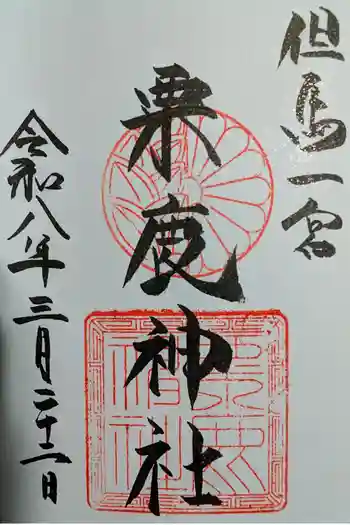 但馬一宮
粟鹿神社
令和八年三月二十一日
粟鹿
神社